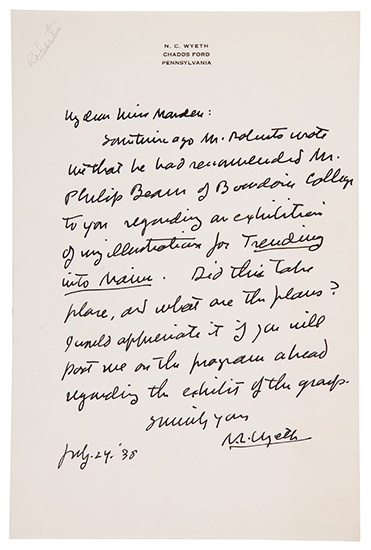 Roberts
N. C. WYETH
CHADDS FORD
PENNSYLVANIA
My dear Miss Marden:
Sometime ago Mr. Roberts wrote
me that he had recommended Mr.
Philip Beam of Bowdoin College
to you regarding an exhibition
of my illustrations for Trending
into Maine. Did this take
place, and what are the plans?
I would appreciate it if you will
post me on the program ahead
regarding the exhibit of the group.
Sincerely yours
N. C. Wyeth
July. 24. '38